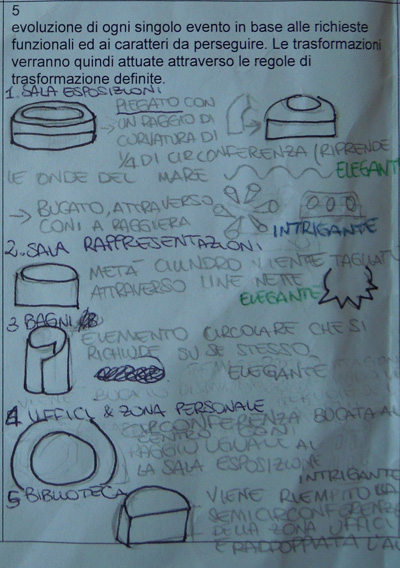 5
evoluzione di ogni singolo evento in base alle richieste
funzionali ed ai caratteri da perseguire. Le trasformazioni
verranno quindi attuate attraverso le regole di
trasformazione definite.
1. SALA ESPOSIZIONI
PIEGATO CON
UN RAGGIO DI
CURVATURA DI
1/4 DI CIRCONFERENZA (RIPRENDE
LE ONDE DEL MARE ELEGANTE
→ BUCATO, ATTRAVERSO
CONI A RAGGIERA
INTRIGANTE
2. SALA RAPPRESENTAZIONI
METÀ CILINDRO VIENE
ATTRAVERSO LINEE NETTE
ELEGANTE
3 BAGNI
ELEMENTO CIRCOLARE CHE SI
RICHIUDE SU SE STESSO
ELEGANTE
4 UFFICI & ZONA PERSONALE
CIRCONFERENZA BUCATA AL
CENTRO
RAGGIO UGUALE AL
LA SALA ESPOSIZIONE
INTRIGANTE
5 BIBLIOTECA
VIENE RIEMPITO LA
SEMICIRCONFERENZA
DELLA ZONA UFFICI
E RADDOPPIATA